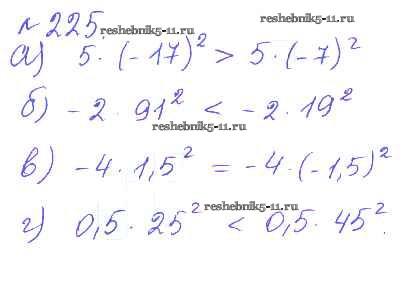 reshebnik5-11.ru
№ 225.
reshebnik5-11.ru
а) 5 · (-17)² > 5 · (-7)²
б) -2 · 91² < -2 · 19²
reshebnik5-11.ru
в) -4 · 1,5² = -4 · (-1,5)²
reshebnik5-11.ru
г) 0,5 · 25² < 0,5 · 45².